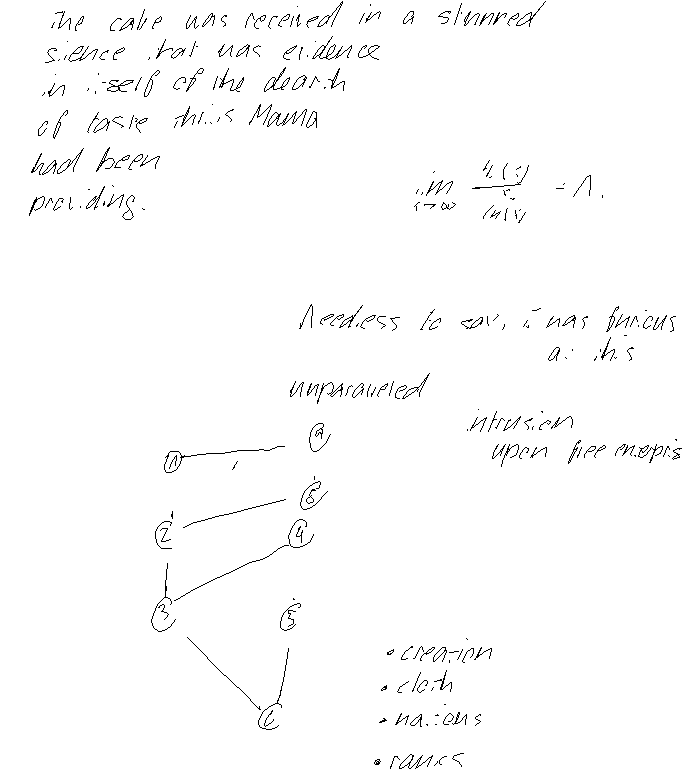 The cake was received in a stunned
silence that was evidence
in itself of the dearth
of taste thi:s Mama
had been
providing.
lim
= 1.
Needless to say, I was furious
at this
unparalleled
intrusion
upon free
1
2
3
4
5
• creation
• cloth
• nations
• ranks